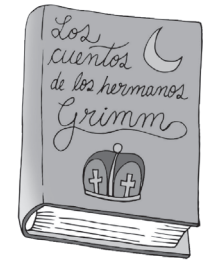 Los
cuentos
de los hermanos
Grimm